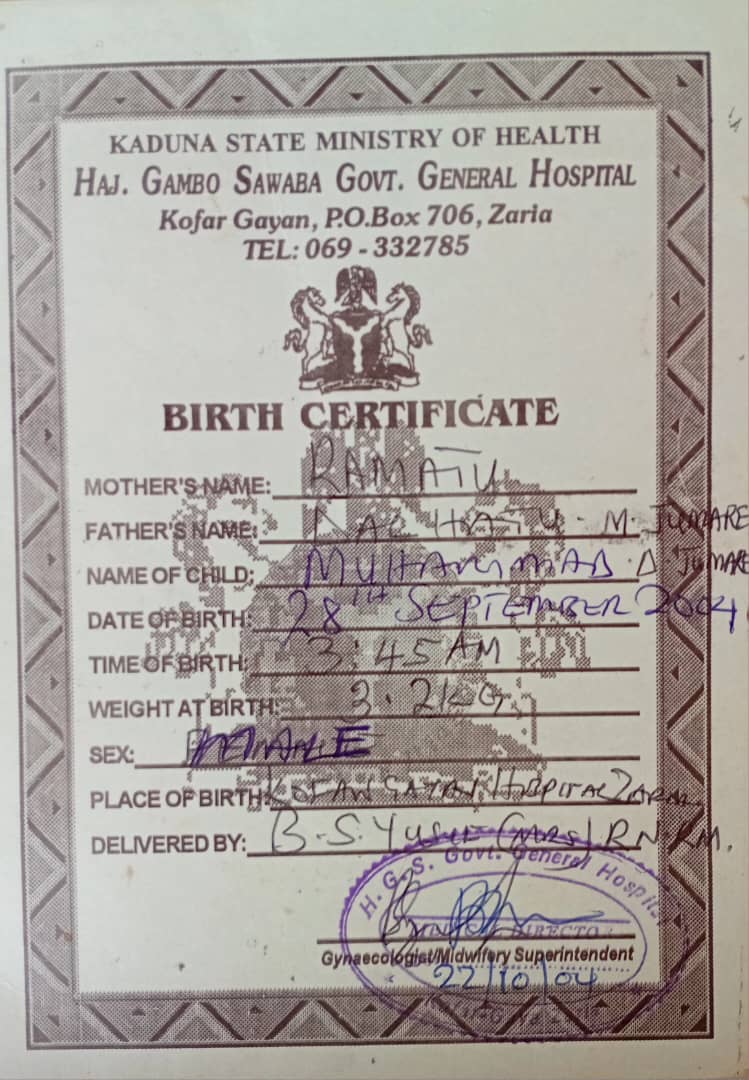 KADUNA STATE MINISTRY OF HEALTH
HAJ. GAMBO SAWABA GOVT. GENERAL HOSPITAL
Kofar Gayan, P.O.Box 706, Zaria
TEL: 069 - 332785
BIRTH CERTIFICATE
MOTHER'S NAME: RAMATU
FATHER'S NAME: M. JUMARE
NAME OF CHILD: MUHAMMAD D. JUMARE
DATE OF BIRTH: 28TH SEPTEMBER 2004
TIME OF BIRTH: 3:45 AM
WEIGHT AT BIRTH: 3.2KG
SEX:
PLACE OF BIRTH: HOSPITAL
DELIVERED BY: B.S. YUSUF (MRS) RN.RM.
H. G. S. Govt. General Hospital
DIRECTOR
Gynaecologist/Midwifery Superintendent
22/10/04